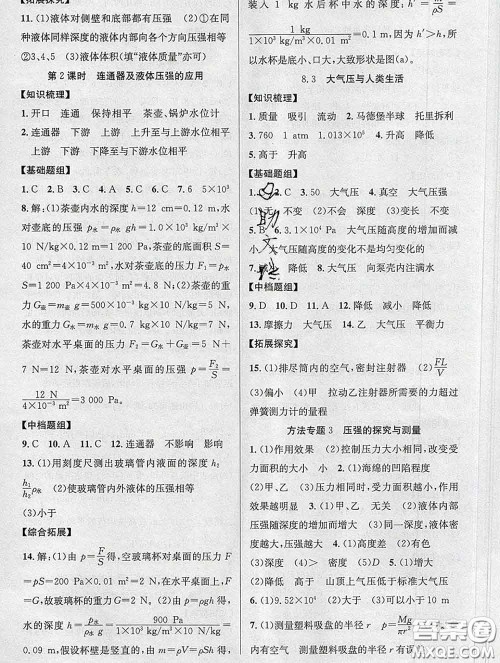 【拓展探究】
11.(1)液体对侧壁和底部都有压强 (2)①在同
种液体同样深度的液体内部向各个方向压强相等
②3、4、5 (3)液体体积(填“液体质量”亦可)
第2课时 连通器及液体压强的应用
【知识梳理】
1.开口 连通 保持相平 茶壶、锅炉水位计
2.连通器 上游 下游 上升至与上游水位相平
下游 上游 下降至与下游水位相平
【基础题组】
1.C 2.C 3.C 4.A 5.C 6.C 7.6 5×10³
8.解:(1)茶壶内水的深度h=12 cm=0.12 m,水
对壶底的压强p水=ρ水gh=1×10³ kg/m³×10
N/kg×0.12 m=1 200 Pa,茶壶的底面积S=
40 cm²=4×10⁻³ m²,水对茶壶底的压力F₁=p水S
=1 200 Pa×4×10⁻³ m²=4.8 N。(2)茶壶的重
力G壶=m壶g=500×10⁻³ kg×10 N/kg=5 N,
水的重力G水=m水g=0.7 kg×10 N/kg=7 N,
茶壶对水平桌面的压力F=G水+G壶=5 N+
7 N=12 N,茶壶对水平桌面的压强p=F/S=
12 N/4×10⁻³ m²=3 000 Pa。
【中档题组】
9.C 10.A 11.C 12.连通器 不影响 影响
13.(1)用刻度尺测出玻璃管内液面的深度h₂
h₁/h₂ρ水 (2)使玻璃管内外液体的压强相等
(3)小于
【综合拓展】
14.解:(1)由p=F/S得,空玻璃杯对桌面的压力F
=pS=200 Pa×0.01 m²=2 N,在水平桌面上G
=F=2 N,故玻璃杯的重力为2 N。(2)由p=ρgh得,
水的深度h=p/ρg=900 Pa/1×10³ kg/m³×10 N/kg=
0.09 m,假设杯壁是竖直的,由p=F/S=G/S=mg/S
装入1 kg水后杯中水的深度:h′=m/ρS=
1 kg/1×10³ kg/m³×0.01 m²=0.1 m,因h′>h,所
以,水杯是底小、口大,大致形状是图(a)。
8.3 大气压与人类生活
【知识梳理】
1.质量 吸引 流动 2.马德堡半球 托里拆利
3.760 1 1.013×10⁵ 4.升高 降低
5.高于 升高
【基础题组】
2.C 3.50 大气压 4.真空 大气压强
(1)无 不变 (2)不影响 (3)深度 (3)变长 不变
5.B 6.3.1×10⁴ Pa 大气压随高度的增加而减
小 大气压随高度的变化不是均匀变化的
降低 8.大气压 向泵壳内注满水
【中档题组】
9.D 10.D 11.A 12.降低 减小 降低
13.摩擦力 大气压 14.大气压 平衡力
【拓展探究】
15.(1)排尽筒内的空气,密封注射器 (2)FL/V
(3)偏小 (4)甲 拉动乙注射器所需的力超过
弹簧测力计的量程
方法专题3 压强的探究与测量
1.(1)作用效果 (2)控制压力大小相同,改变受
力面积的大小 小 2.(1)海绵的凹陷程度
(2)甲、乙 (3)乙、丙 受力面积 3.(2)液体内部
压强随深度的增加而增大 (3)同一深度,液体密
度越大,压强越大 4.(1)高度差 (2)有色
(3)相同 (4)密度 5.(1)B (2)相等 6.(1)甲、
乙 (2)低于 高于 山顶上气压低于标准大气压
(3)降低 不会 (4)可以 小于10 m
7.(1)测量塑料吸盘的半径r p=Mg/πr²